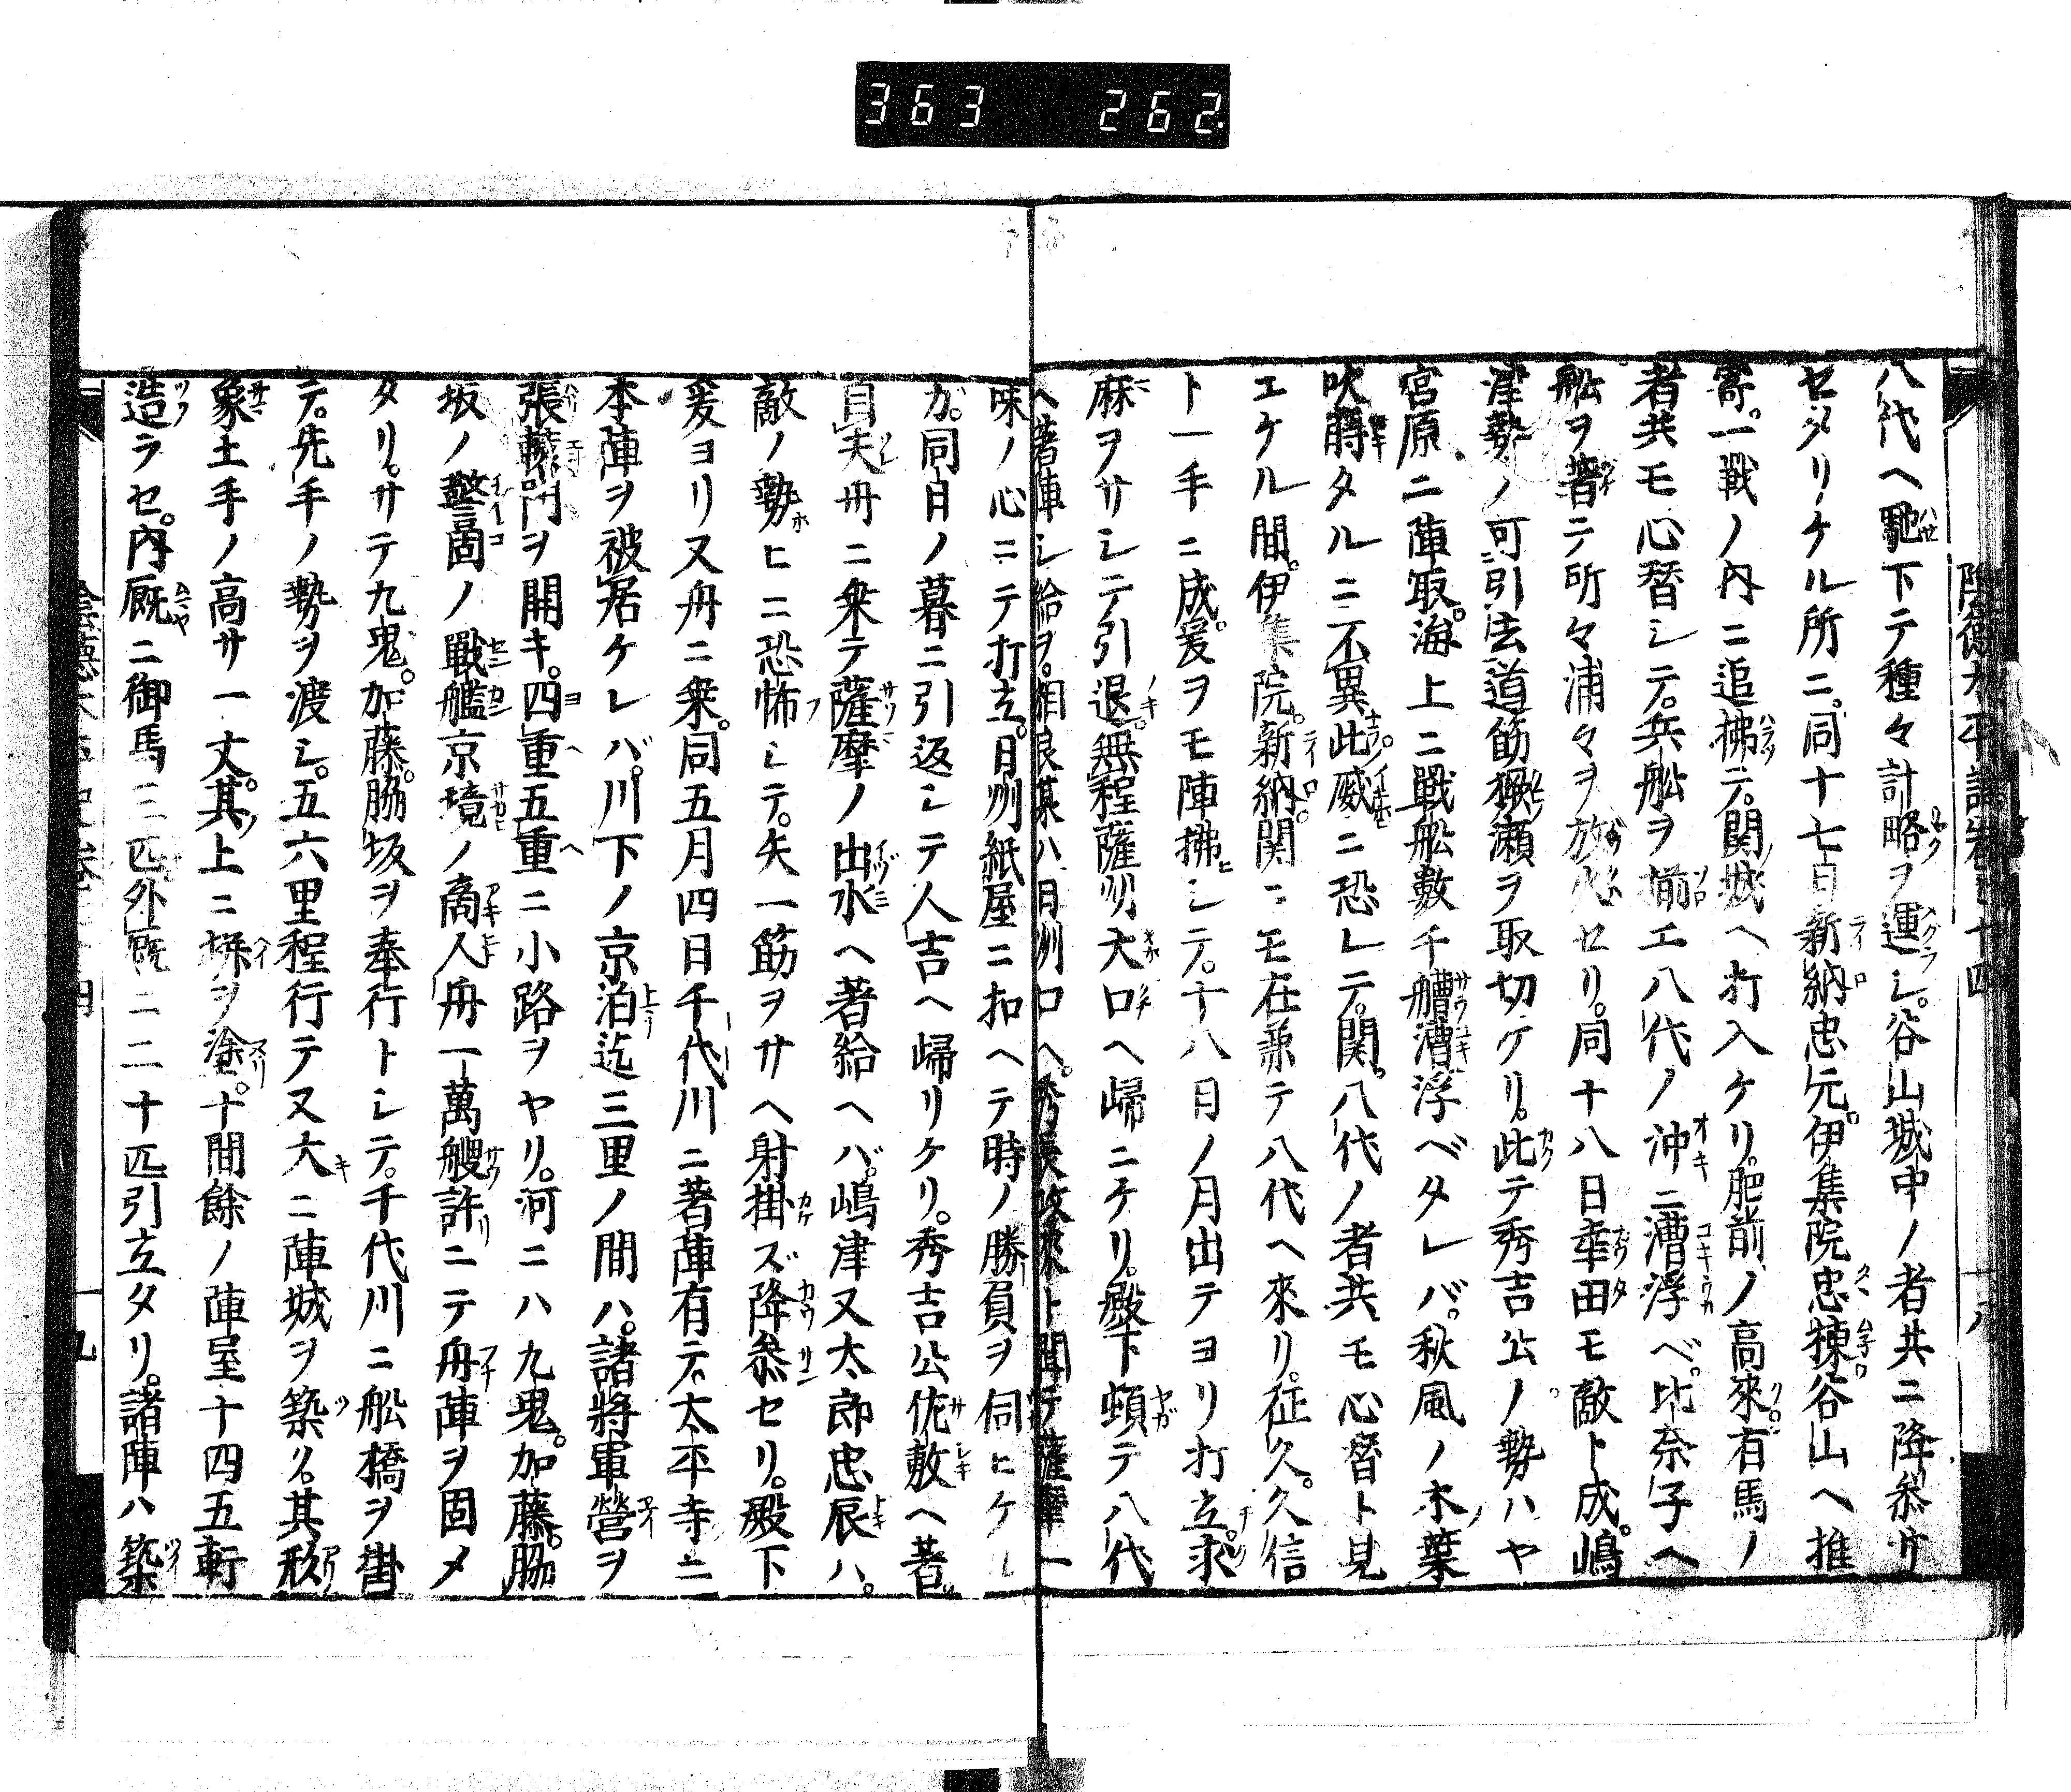 363 262
八代ヘ馳下テ種々計略ヲ運シ。谷山城中ノ者共ニ降参サ
セタリケル所ニ。同十七日新納忠元。伊集院忠棟谷山ヘ推
寄。一戰ノ内ニ追拂テ。関城ヘ打入ケリ。肥前ノ高來有馬ノ
者共モ心替シテ。兵舩ヲ揃エ八代ノ沖ニ漕浮ベ。比奈子ヘ
舩ヲ著テ所々浦々ヲ放火セリ。同十八日幸田モ敵ト成。嶋
津勢ノ可引法道筋瀬ヲ取切ケリ。此テ秀吉公ノ勢ハヤ
宮原ニ陣取。海上ニ戰舩数千艚漕浮ベタレバ。秋風ノ木葉
吹タルニ不異此威ニ恐レテ。関。八代ノ者共モ心替ト見
エケル間。伊集院。新納。関ニモ在兼テ八代ヘ來リ。征久。久信
ト一手ニ成。爰ヲモ陣拂シテ。十八日ノ月出テヨリ打立。求
麻ヲサシテ引退。無程薩州大口ヘ歸ニケリ。殿下頓テ八代
ヘ著陣シ給ヲ。相良某ハ日州口ヘ。秀長攻來ト聞テ薩摩一
味ノ心ニテ打立。日州紙屋ニ扣ヘテ時ノ勝負ヲ伺ヒケル
カ。同日ノ暮ニ引返シテ人吉ヘ歸リケリ。秀吉公佐敷ヘ著
自夫舟ニ乗テ薩摩ノ出水ヘ著給ヘバ。嶋津又太郎忠辰ハ。
敵ノ勢ヒニ恐怖シテ。矢一筋ヲサヘ射掛ズ降参セリ。殿下
爰ヨリ又舟ニ乗。同五月四日千代川ニ著陣有テ。太平寺ニ
本陣ヲ被居ケレバ。川下ノ京泊迄三里ノ間ハ。諸將軍營ヲ
張轅門ヲ開キ。四重五重ニ小路ヲヤリ。河ニハ九鬼。加藤。脇
坂ノ警固ノ戰艦京境ノ商人舟一萬艘許ニテ舟陣ヲ固メ
タリ。サテ九鬼。加藤。脇坂ヲ奉行トシテ。千代川ニ舩橋ヲ掛
テ。先手ノ勢ヲ渡シ。五六里程行テ又大ニ陣城ヲ築ク。其
象土手ノ高サ一丈。其上ニ塀ヲ塗。十間餘ノ陣屋十四五軒
造ラセ。内厩ニ御馬三匹。外厩ニ二十匹引立タリ。諸陣ハ築